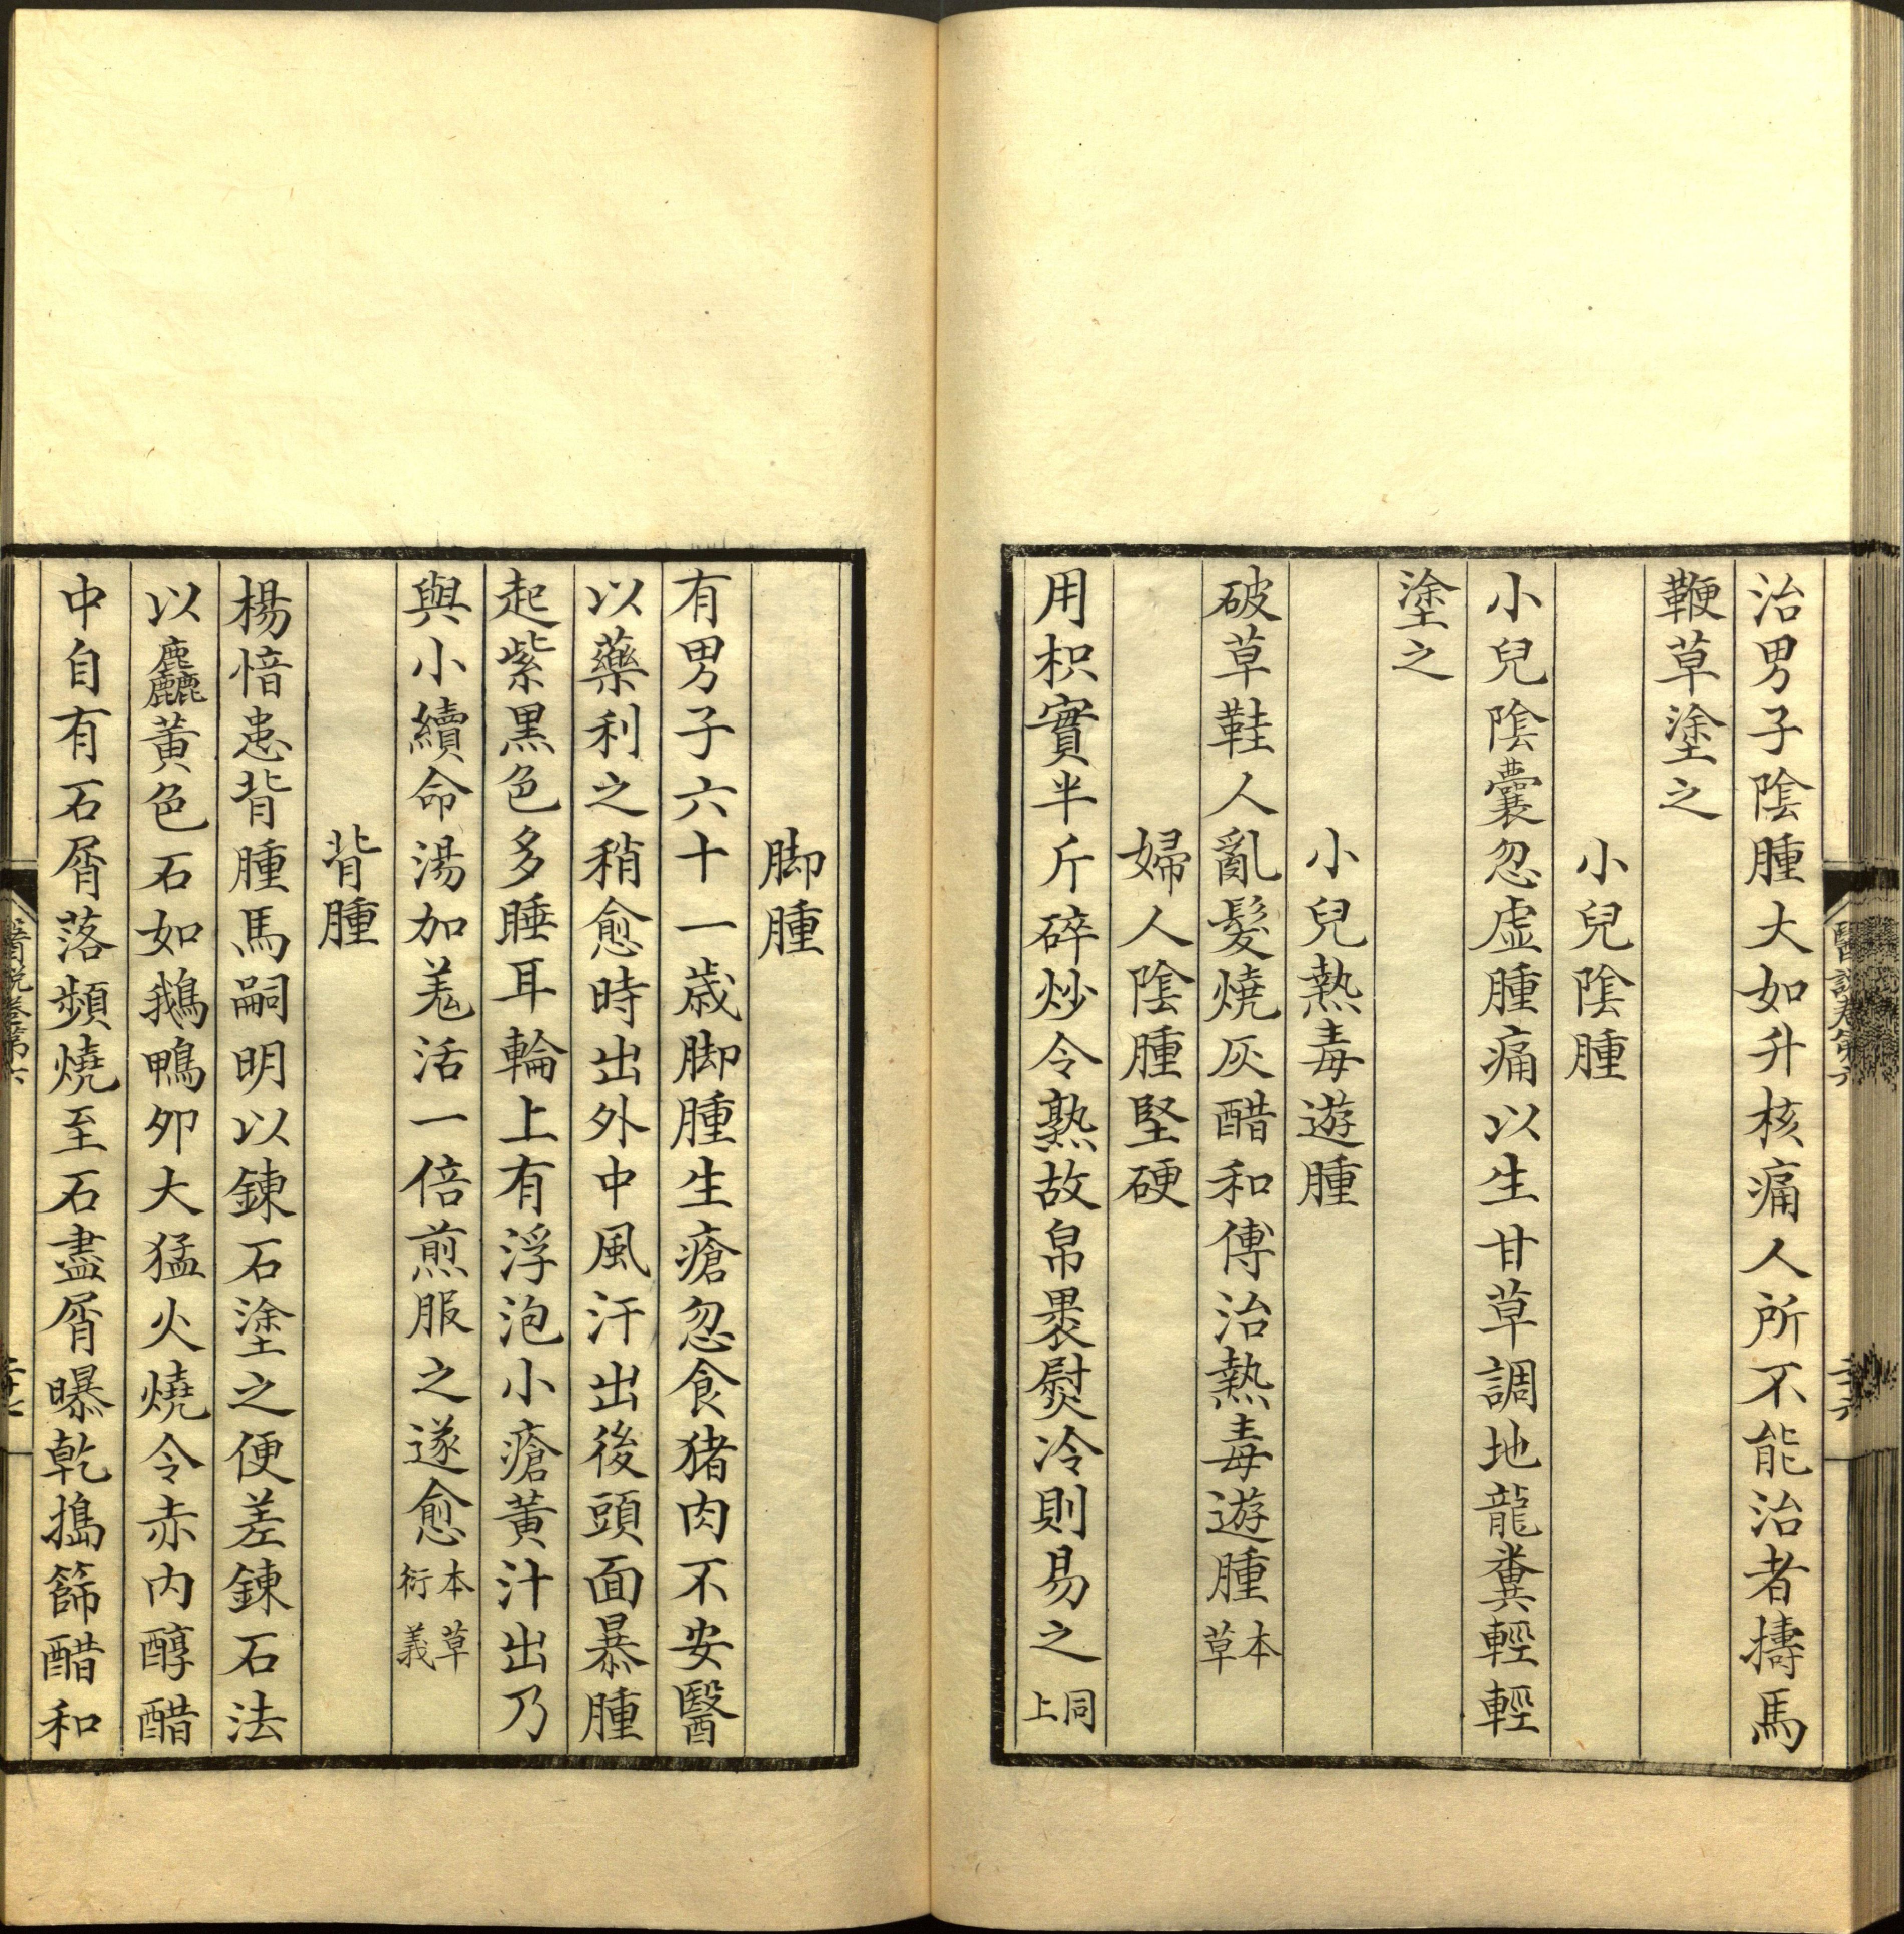 治男子陰腫大如升核痛人所不能治者擣馬
鞭草塗之
小兒陰腫
小兒陰囊忽虛腫痛以生甘草調地龍糞輕輕
塗之
小兒熱毒遊腫
破草鞋人亂髮燒灰醋和傅治熱毒遊腫本草
婦人陰腫堅硬
用枳實半斤碎炒令熟故帛裹熨冷則易之同上
脚腫
有男子六十一歲脚腫生瘡忽食猪肉不安醫
以藥利之稍愈時出外中風汗出後頭面暴腫
起紫黑色多睡耳輪上有浮泡小瘡黃汁出乃
與小續命湯加羌活一倍煎服之遂愈本草衍義
背腫
楊愔患背腫馬嗣明以鍊石塗之便差鍊石法
以麤黃色石如鵝鴨卵大猛火燒令赤內醇醋
中自有石屑落頻燒至石盡屑曝乾搗篩醋和
醫說卷第六